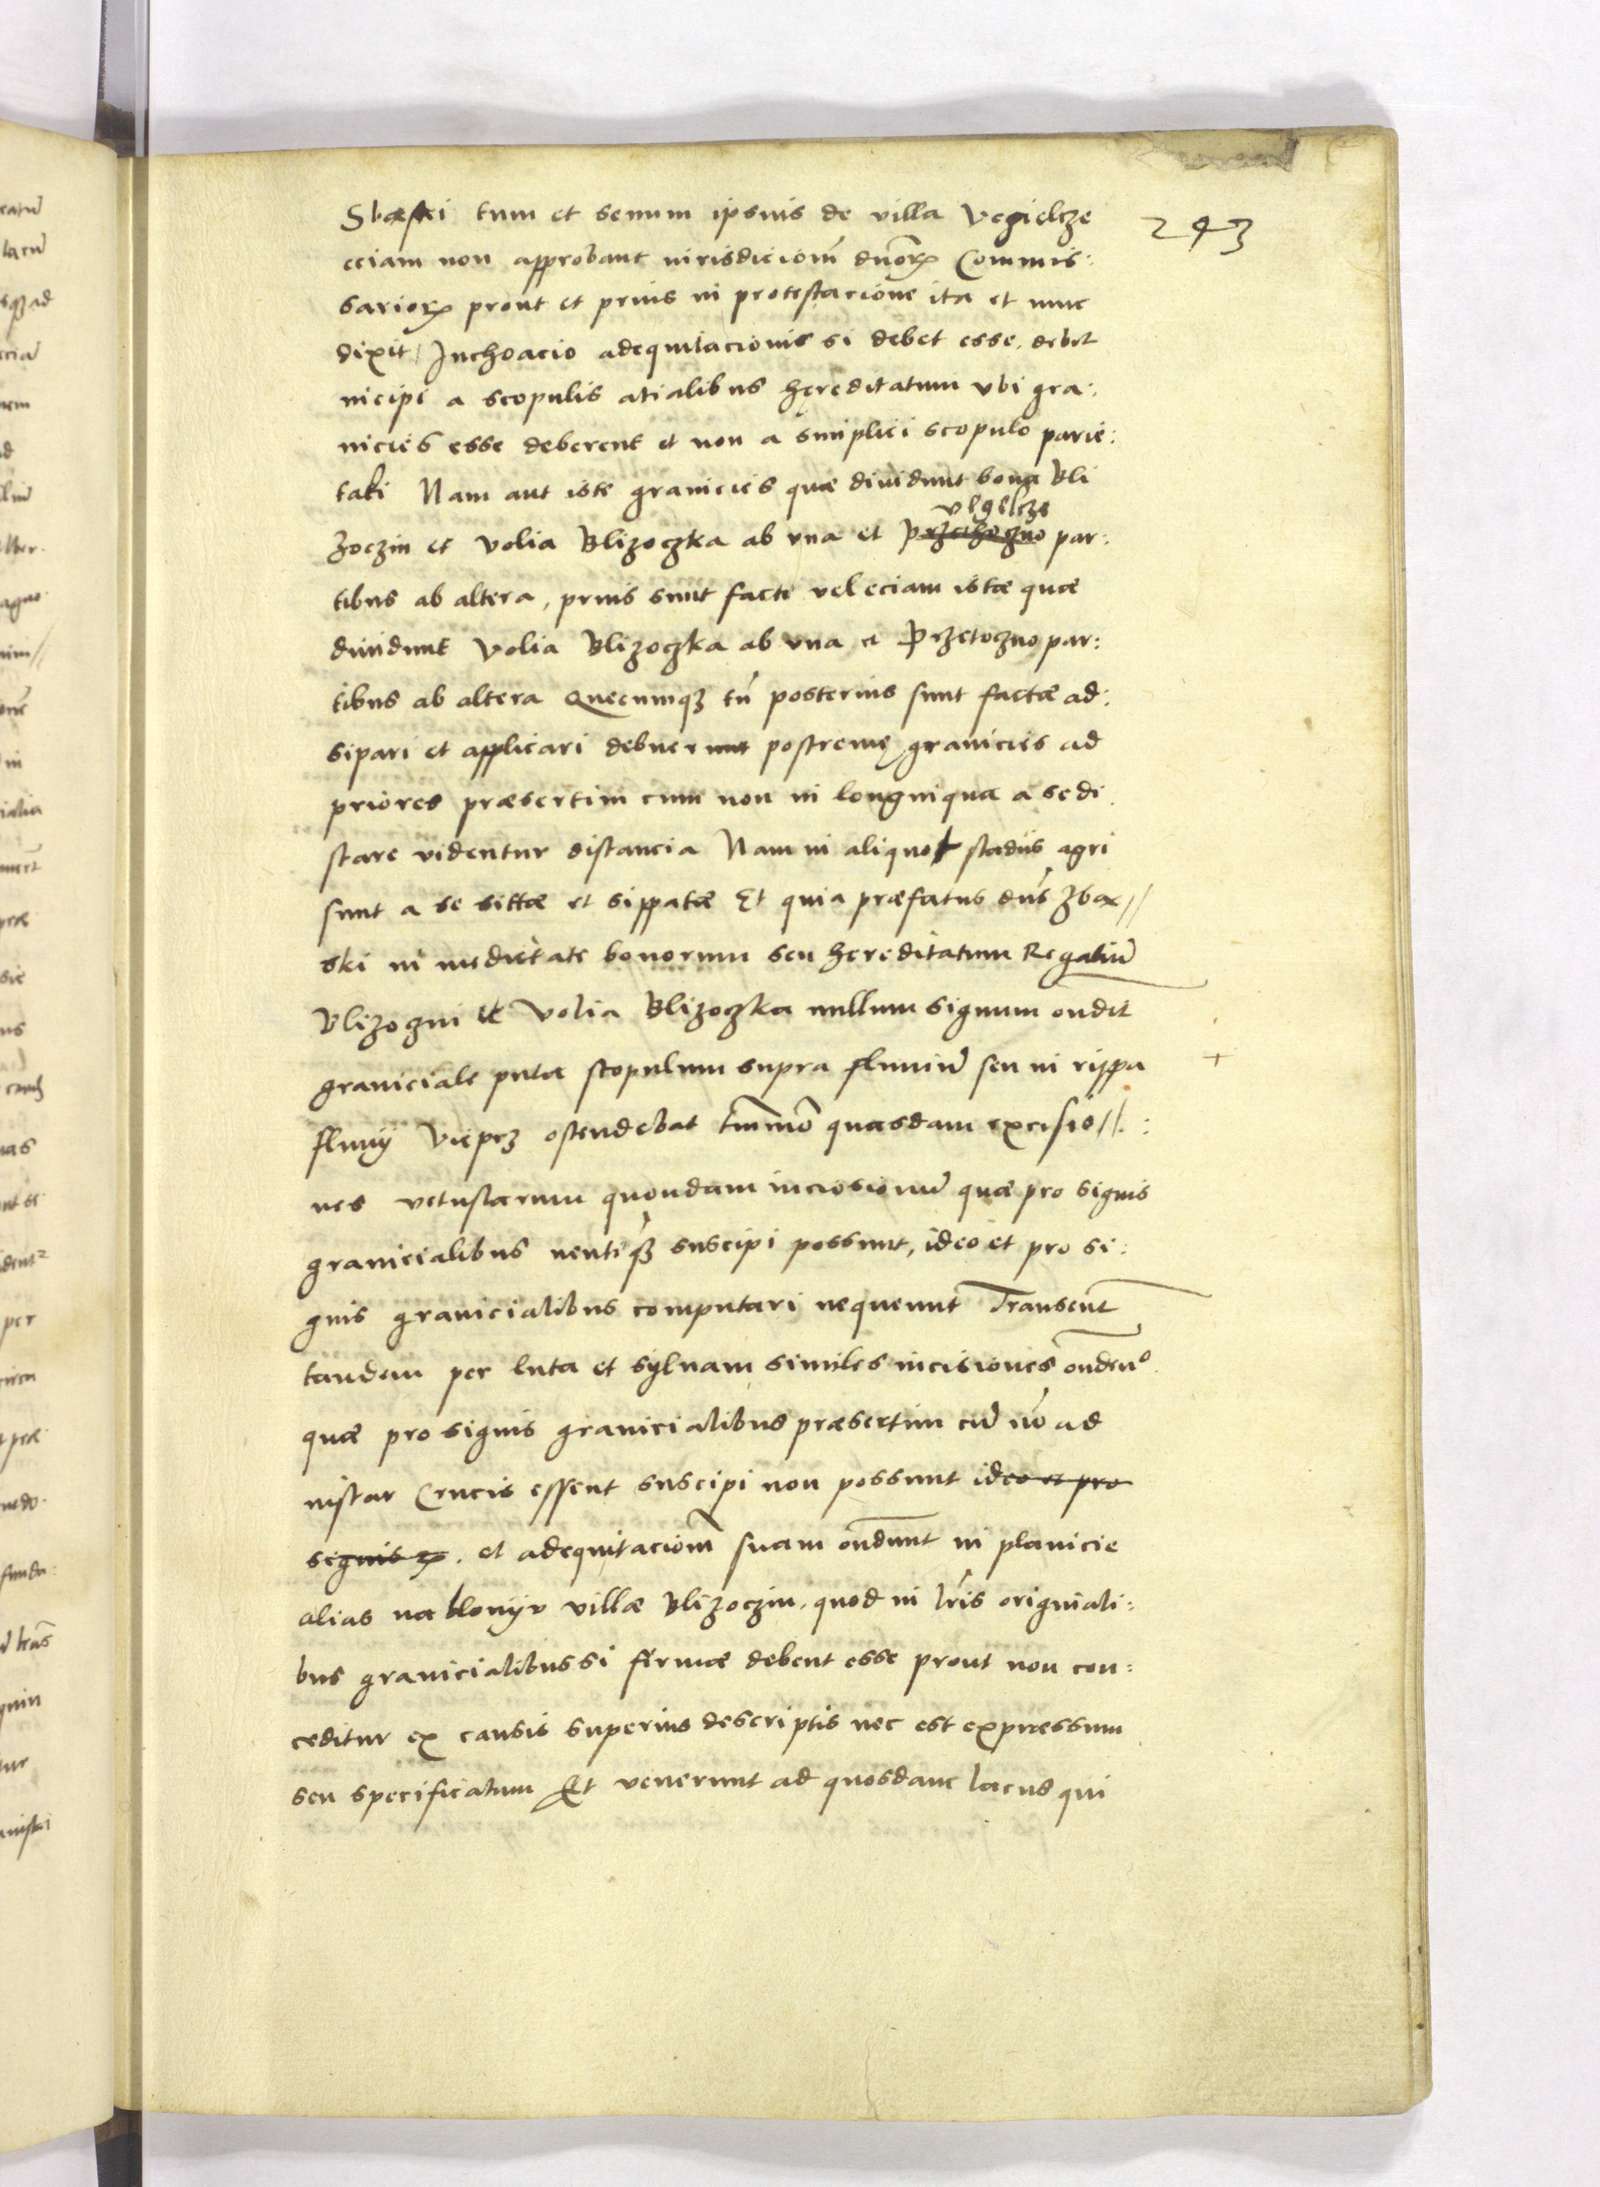 243
Sbaski tum et semum ipsius de villa Vegielcze
eciam non approbant iurisdicionē dnorꝝ Commis:
sariorꝝ prout et prius in protestacione ita et nunc
dixit / Inchoacio adequitacionis si debet esse, debet
incipi a scopulis acialibus hęreditatum vbi gra:
nicies esse deberent et non a simplici scopulo parie:
taki Nam aut iste granicies quæ diuidunt bona Bli
vegielcze
zoczin et Volia Blizoczka ab vna et Przethoczno par:
tibus ab altera, prius sunt facte vel eciam istæ quæ
diuidunt Volia Blizoczka ab vna et Przetoczno par:
tibus ab altera Quecumqꝫ tñ posterius sunt factæ ad:
sipari et applicari debuerunt postremę granicies ad
priores præsertim cum non in longinqua a se di
stare videntur distancia Nam in aliquot stadiis agri
sunt a se sittæ et sippatæ Et quia præfatus dns Zbax//
ski in medietate bonorum seu hereditatum Regaliū
Blizozni et Volia Blizoczka nullum signum ondit
graniciale puta scopulum supra fluuiū seu in rippa +
fluuij Vieprz ostendebat tmmō quasdam excisio//:
nes vetustarum quondam incisionū quæ pro signis
granicialibus neutiqꝫ suscipi possunt, ideo et pro si:
gnis granicialibus computari nequeunt Transeunt
tandem per luta et syluam similes incisiones onden°
quæ pro signis granicialibus præsertim cū nō ad
instar Crucis essent suscipi non possunt ideo et pro
signis. et adequitacionē suam ondunt in planicie
alias na blonyv villæ Blizoczin, quod in lris originali:
bus granicialibus si firmæ debent esse prout non con:
ceditur ex causis superius descriptis nec est expressum
seu specificatum Et venerunt ad quosdam lacus qui